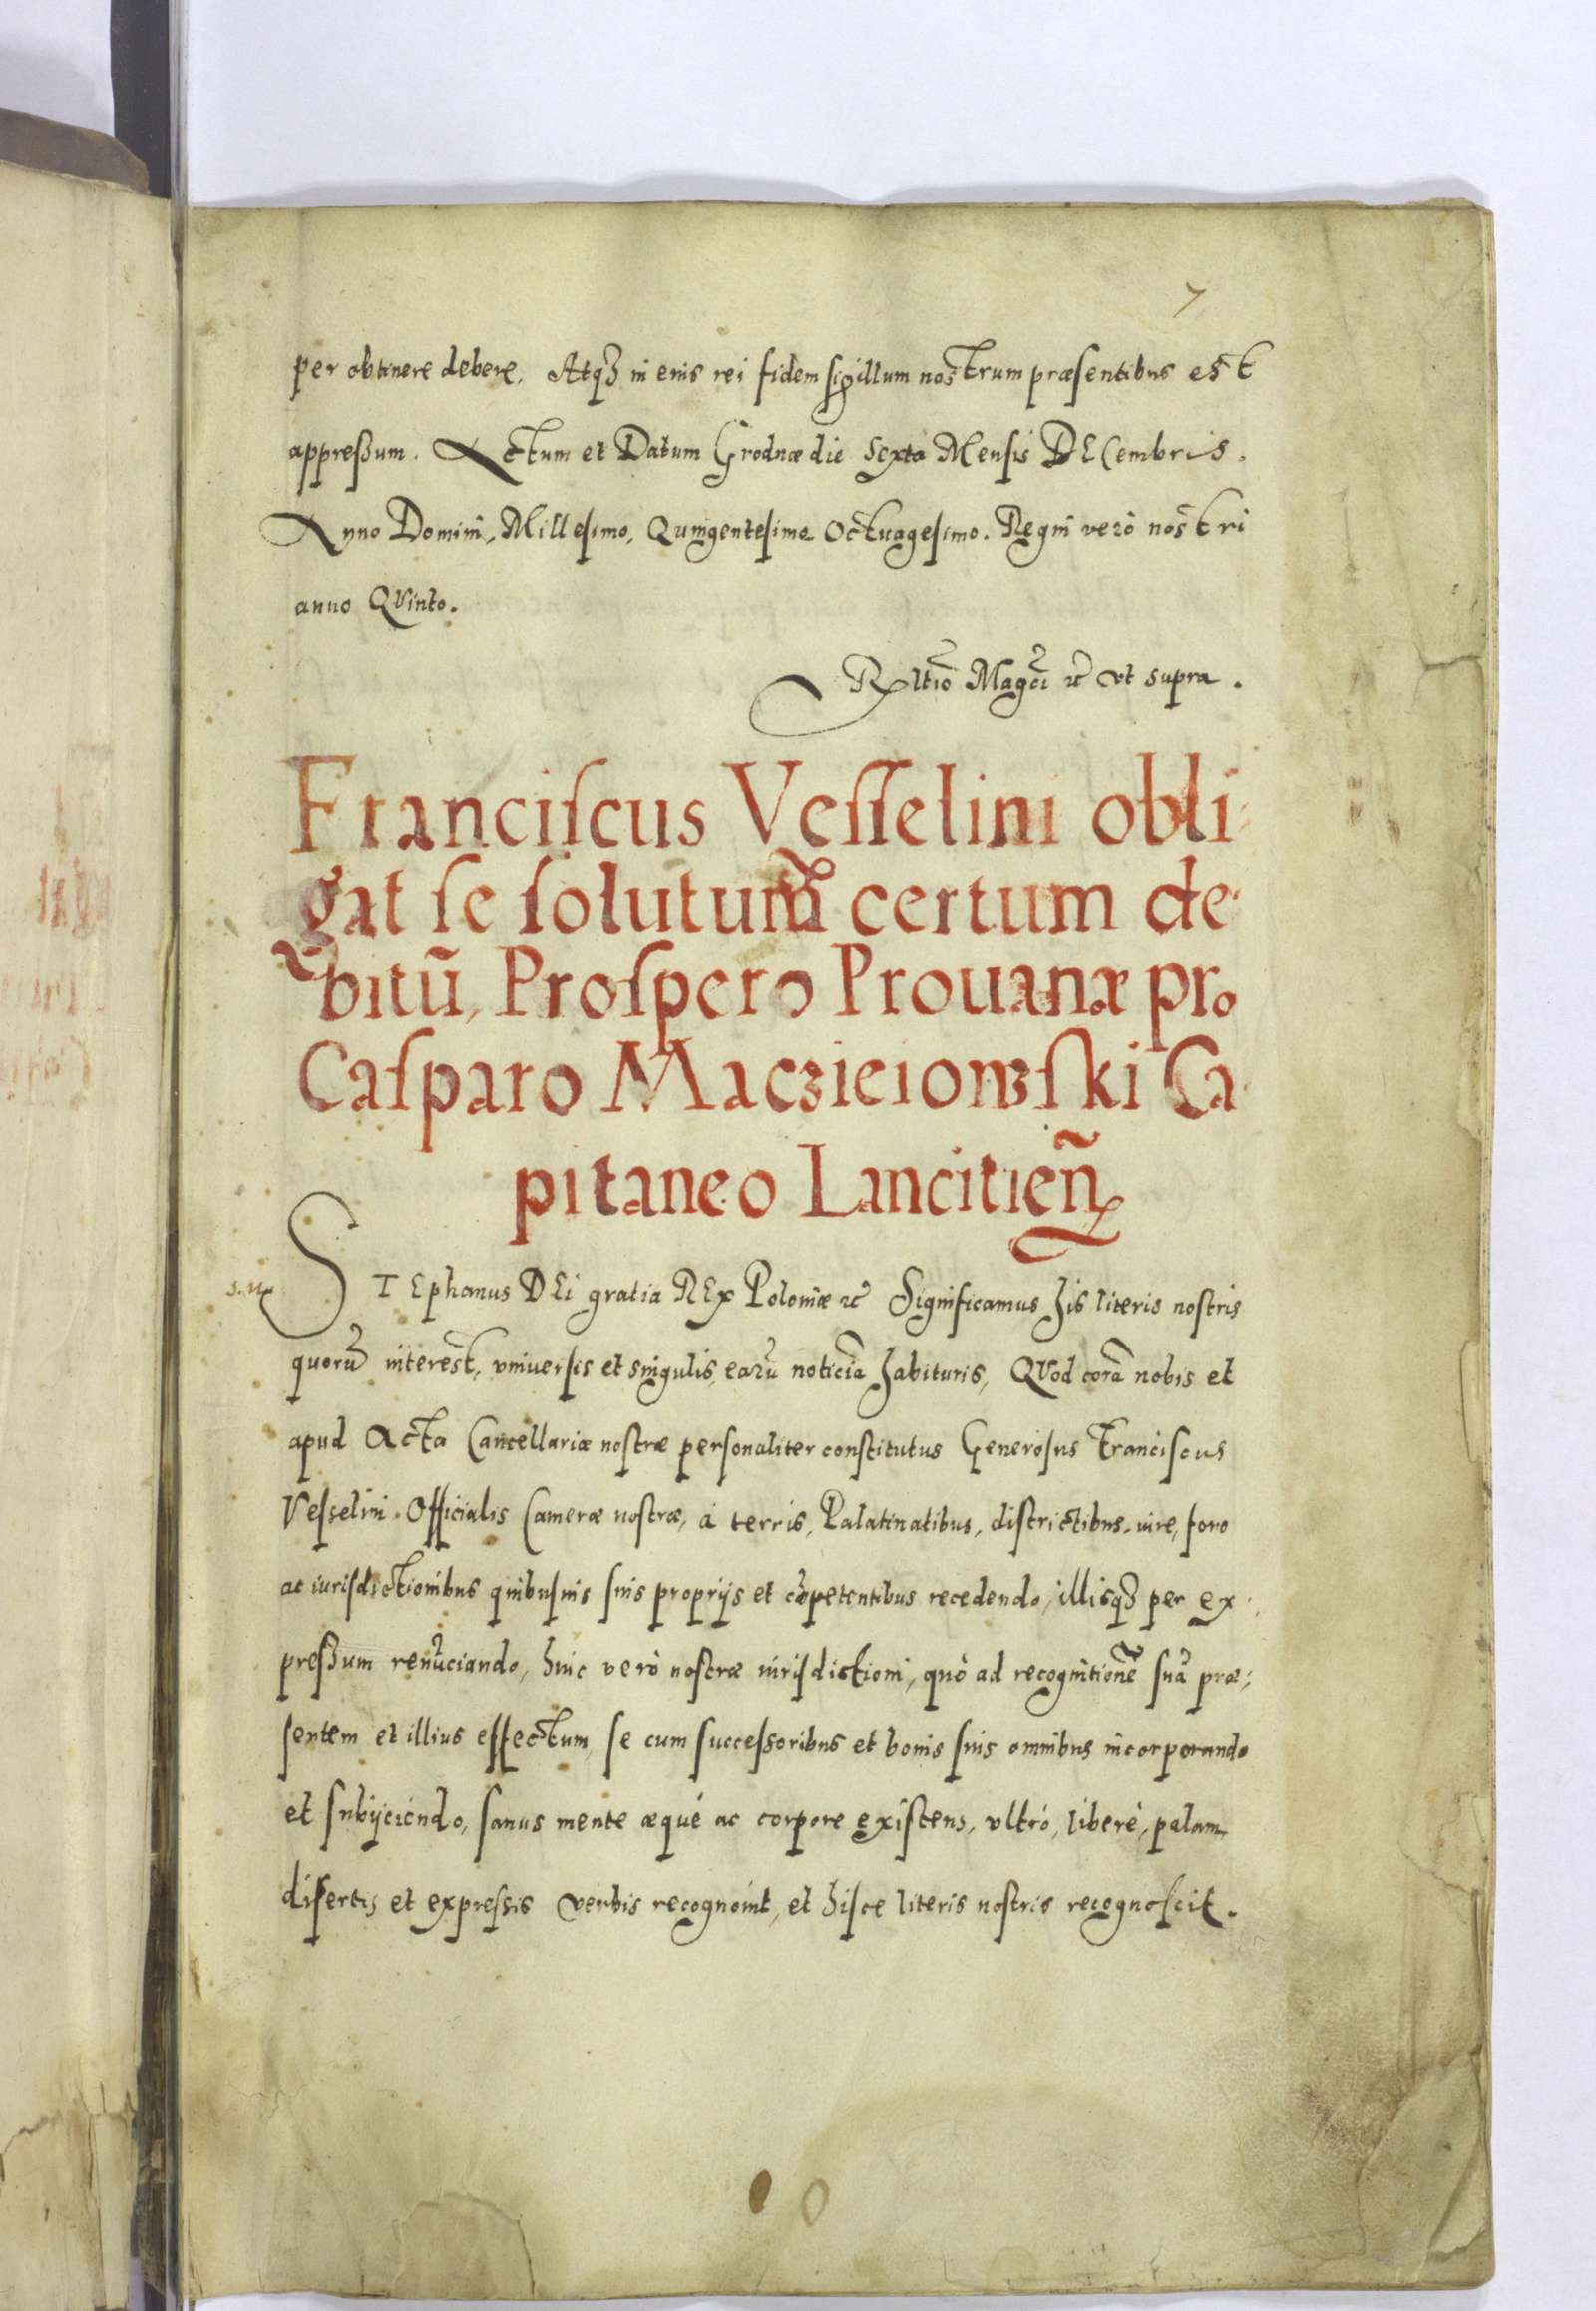 7
per obtinere debere. Atqꝫ in eius rei fidem sigillum nostrum præsentibus est
appreßum. Actum et Datum Grodnæ die Sexta Mensis DECembris.
Anno Domini, Millesimo, Quingentesimo Octuagesimo. Regni verò nostri
anno QVinto.
Rltio Magci ꝛc vt supra.
Franciſcus Veſſelini obli
gat ſe ſolutum̃ certum de
bitũ, Proſpero Prouanæ pro
Caſparo Maczieiowſki Ca
pitaneo Lancitień
STEphanus DEi gratia REx Poloniæ ꝛc Significamus his literis noſtris
quorũ interest, vniuerſis et singulis, earũ noticiã habituris, QVod corã nobis et
apud Acta Cancellariæ noſtræ perſonaliter conſtitutus Generoſus Franciſcus
Veſſelini Officialis Cameræ noſtræ, à terris, Palatinatibus, diſtrictibus, iure, foro
ac iuriſdictionibus quibuſuis ſuis proprijs et cõpetentibus recedendo, illisqꝫ per ex
preßum renũciando, huic verò noſtræ iurisdictioni, quò ad recognitionẽ ſuã præ
ſentem et illius effectum, ſe cum ſucceſſoribus et bonis ſuis omnibus incorporando
et ſubijciendo, ſanus mente æquè ac corpore exiſtens, vltrò, liberè, palam
diſertis et expreſſis verbis recognouit, et hiſce literis noſtris recognoſcit.